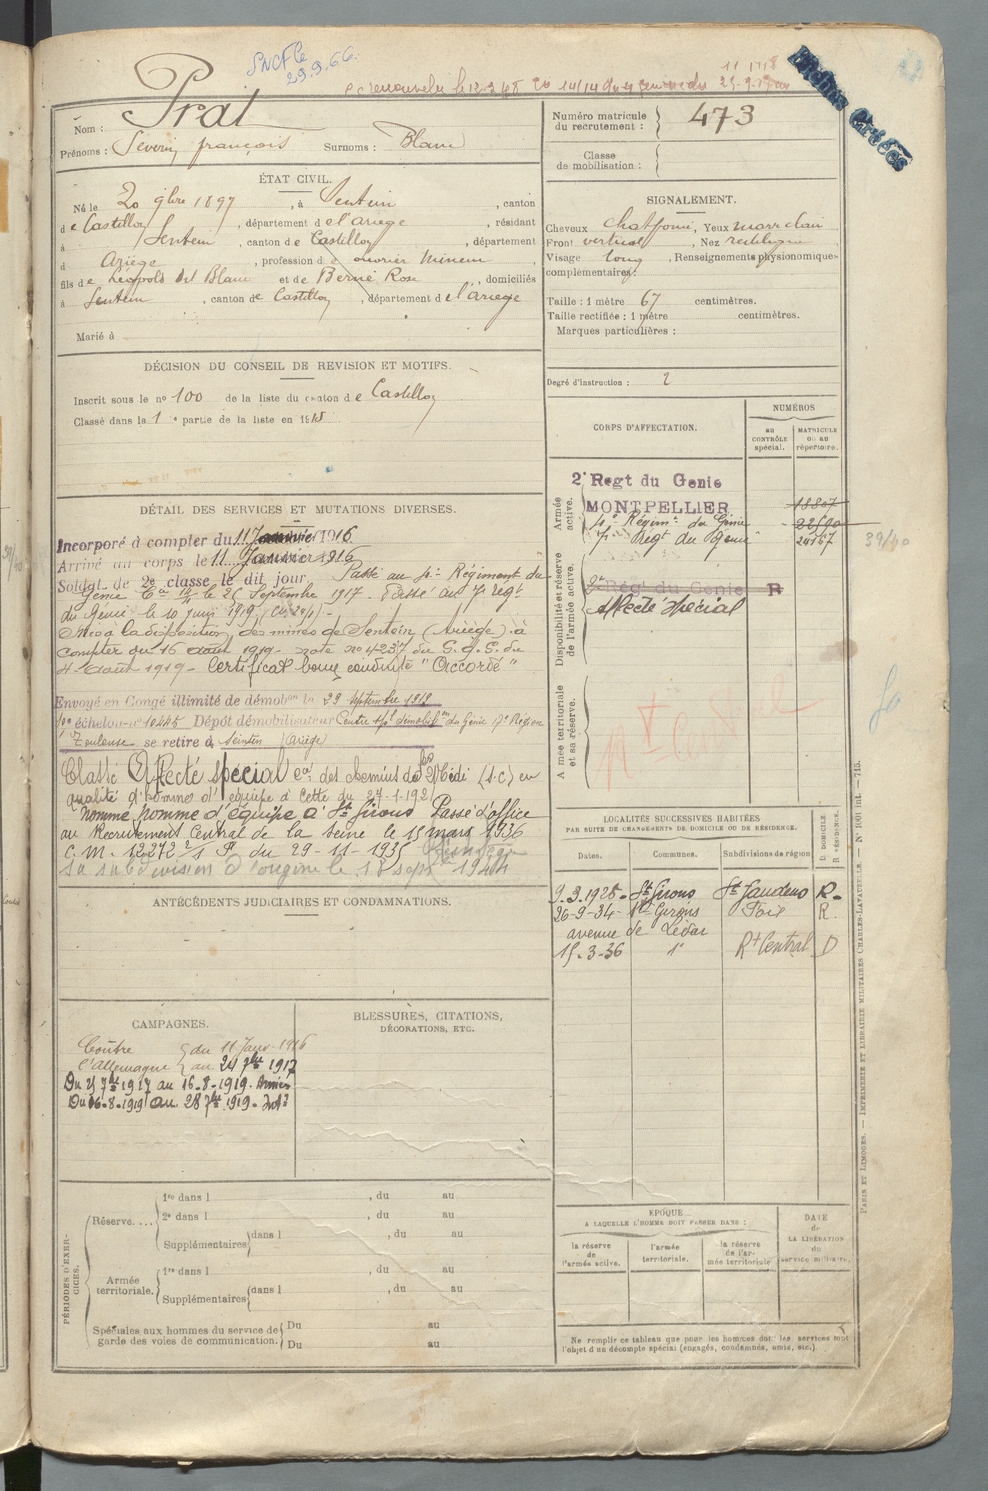 SNCF le
29.9.66.
11 1718
Prat
Nom :
Prénoms : Severin françois Surnoms : Blanc
ÉTAT CIVIL.
Né le 20 9bre 1897 , à Sentein , canton
de Castillon , département de l'ariège , résidant
à Sentein , canton de Castillon , département
d Ariège , profession de ouvrier mineur
fils de Léopold dit Blanc et de Berné Rose , domiciliés
à Sentein , canton de Castillon , département de l'ariege
Marié à
DÉCISION DU CONSEIL DE REVISION ET MOTIFS.
Inscrit sous le no 100 de la liste du canton de Castillon
Classé dans la 1e partie de la liste en 1918
DÉTAIL DES SERVICES ET MUTATIONS DIVERSES.
Incorporé à compter du 11 Janvier 1916
Arrivé au corps le 11 Janvier 1916
Soldat de 2e classe le dit jour. Passé au Régiment du
Génie le Septembre 1917 - Passé au 7e régt
du Génie le 10 juin 1919
Mis à la disposition des mines de Sentein (Ariège) à
compter du 16 août 1919 - note no 4237 du G.Q.G. du
4 - août 1919 - Certificat bonne conduite "Accordé"
Envoyé en Congé illimité de démobon le 29 septembre 1919
échelon - no 10445 Dépôt démobilisateur Centre démobilon du Génie 17e Région
Toulouse se retire à Sentein (Ariège)
Classé Affecté spécial des chemins de fer Midi (S.C) en
qualité d'homme d'équipe à Cette du 27-1-1921
nommé homme d'équipe à St Girons Passé d'office
au Recrutement Central de la Seine le 15 mars 1936
C.M. 12272 2/1 du 29-11-1935
sa subdivision d'origine le 18 sept 1944
ANTÉCÉDENTS JUDICIAIRES ET CONDAMNATIONS.
CAMPAGNES.
Contre du 11 Janv 1916
l'Allemagne au 24 7bre 1917
Du 25 7bre 1917 au 16-8-1919. Armées
Du 16-8-1919 au 28 7bre 1919. Intr
BLESSURES, CITATIONS,
DÉCORATIONS, ETC.
PÉRIODES D'EXERCICES.
Réserve....
1re dans l , du au
2e dans l , du au
Supplémentaires dans l , du au
Armée
territoriale.
1re dans l , du au
Supplémentaires dans l , du au
Spéciales aux hommes du service de
garde des voies de communication.
Du au
Du au
Numéro matricule
du recrutement : 473
Classe
de mobilisation :
SIGNALEMENT.
Cheveux chat foncé, Yeux marr clair
Front vertical , Nez rectiligne
Visage long , Renseignements physionomiques
complémentaires:
Taille : 1 mètre 67 centimètres.
Taille rectifiée : 1 mètre centimètres.
Marques particulières :
Degré d'instruction : 2
CORPS D'AFFECTATION.
NUMÉROS
AU
CONTRÔLE
spécial.
MATRICULE
OU AU
répertoire.
Armée
active.
2e Regt du Genie
MONTPELLIER 18807
Régimt du Génie 22590
7e Regt du Génie 24167
39/40
Disponibilité et réserve
de l'armée active.
2e Régt du Genie R
Affecté spécial
Armée territoriale
et sa réserve.
Rt Central
LOCALITÉS SUCCESSIVES HABITÉES
PAR SUITE DE CHANGEMENTS DE DOMICILE OU DE RÉSIDENCE.
D. DOMICILE.
R. RÉSIDENCE.
Dates. Communes. Subdivisions de région
9.3.1928 - St Girons St Gaudens R.
26-9-34 - St Girons Foix R.
avenue de Lédar
15-3-36 1" Rt Central D
ÉPOQUE
A LAQUELLE L'HOMME DOIT PASSER DANS :
la réserve
de
l'armée active.
l'armée
territoriale.
la réserve
de l'ar-
mée territoriale
DATE
de
LA LIBÉRATION
du
service militaire.
Ne remplir ce tableau que pour les hommes dont les services sont
l'objet d'un décompte spécial (engagés, condamnés, omis, etc.).
PARIS ET LIMOGES. — IMPRIMERIE ET LIBRAIRIE MILITAIRES CHARLES-LAVAUZELLE. — No 1001 int. — 715.